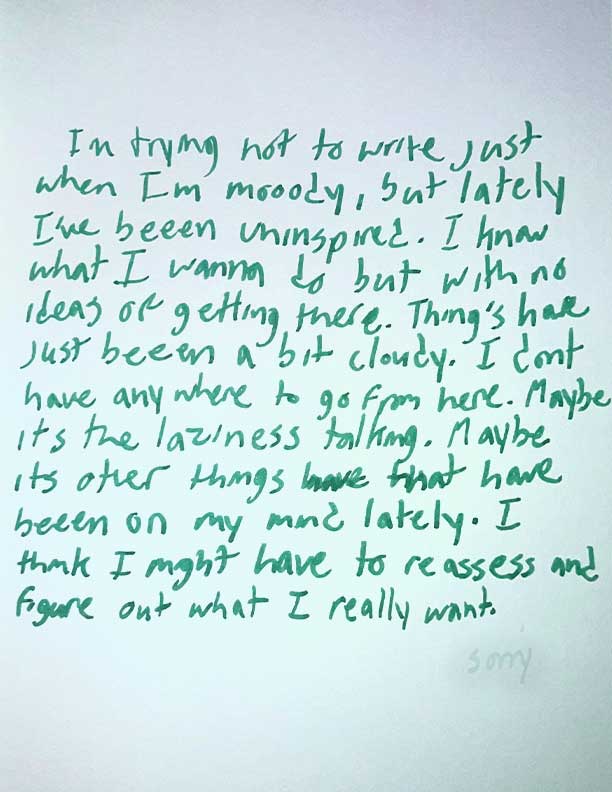 Im trying not to write just
when I'm mooody, but lately
I've beeen uninspired. I know
what I wanna do but with no
ideas of getting there. Thing's have
just beeen a bit cloudy. I dont
have anywhere to go from here. Maybe
it's the laziness talking. Maybe
its other things have that have
beeen on my mind lately. I
think I might have to reassess and
figure out what I really want.
sorry